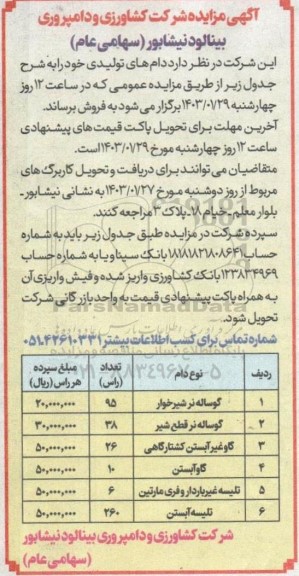 آگهی مزایده شرکت کشاورزی و دامپروری
بینالود نیشابور (سهامی عام)
این شرکت در نظر دارد دام‌های تولیدی خود را به شرح
جدول زیر از طریق مزایده عمومی که در ساعت ۱۲ روز
چهارشنبه ۱۴۰۳/۰۱/۲۹ برگزار می‌شود به فروش برساند.
آخرین مهلت برای تحویل پاکت قیمت‌های پیشنهادی
ساعت ۱۲ روز چهارشنبه مورخ ۱۴۰۳/۰۱/۲۹ است.
متقاضیان می‌توانند برای دریافت و تحویل کاربرگ‌های
مربوط از روز دوشنبه مورخ ۱۴۰۳/۰۱/۲۷ به نشانی نیشابور ـ
بلوار معلم ـ خیام ۱۸ ـ پلاک ۳ مراجعه کنند.
سپرده شرکت در مزایده طبق جدول زیر باید به شماره
حساب بانک سینا و یا به شماره حساب
۱۲۳۸۳۴۹۶۹ بانک کشاورزی واریز شده و فیش واریزی آن
به همراه پاکت پیشنهادی قیمت به واحد بازرگانی شرکت
تحویل شود.
شماره تماس برای کسب اطلاعات بیشتر ۰۵۱.۴۲۶۱۰۳۳۱
ردیف نوع دام تعداد (راس) مبلغ سپرده هر راس (ریال)
۱ گوساله نر شیرخوار ۹۵ ۲۰,۰۰۰,۰۰۰
۲ گوساله نر قطع شیر ۳۸ ۳۰,۰۰۰,۰۰۰
۳ گاو غیرآبستن کشتارگاهی ۲۶ ۵۰,۰۰۰,۰۰۰
۴ گاو آبستن ۱۰ ۵۰,۰۰۰,۰۰۰
۵ تلیسه غیرباردار و فری مارتین ۶ ۵۰,۰۰۰,۰۰۰
۶ تلیسه آبستن ۲۶۰ ۵۰,۰۰۰,۰۰۰
شرکت کشاورزی و دامپروری بینالود نیشابور
(سهامی عام)
ParsNamadData